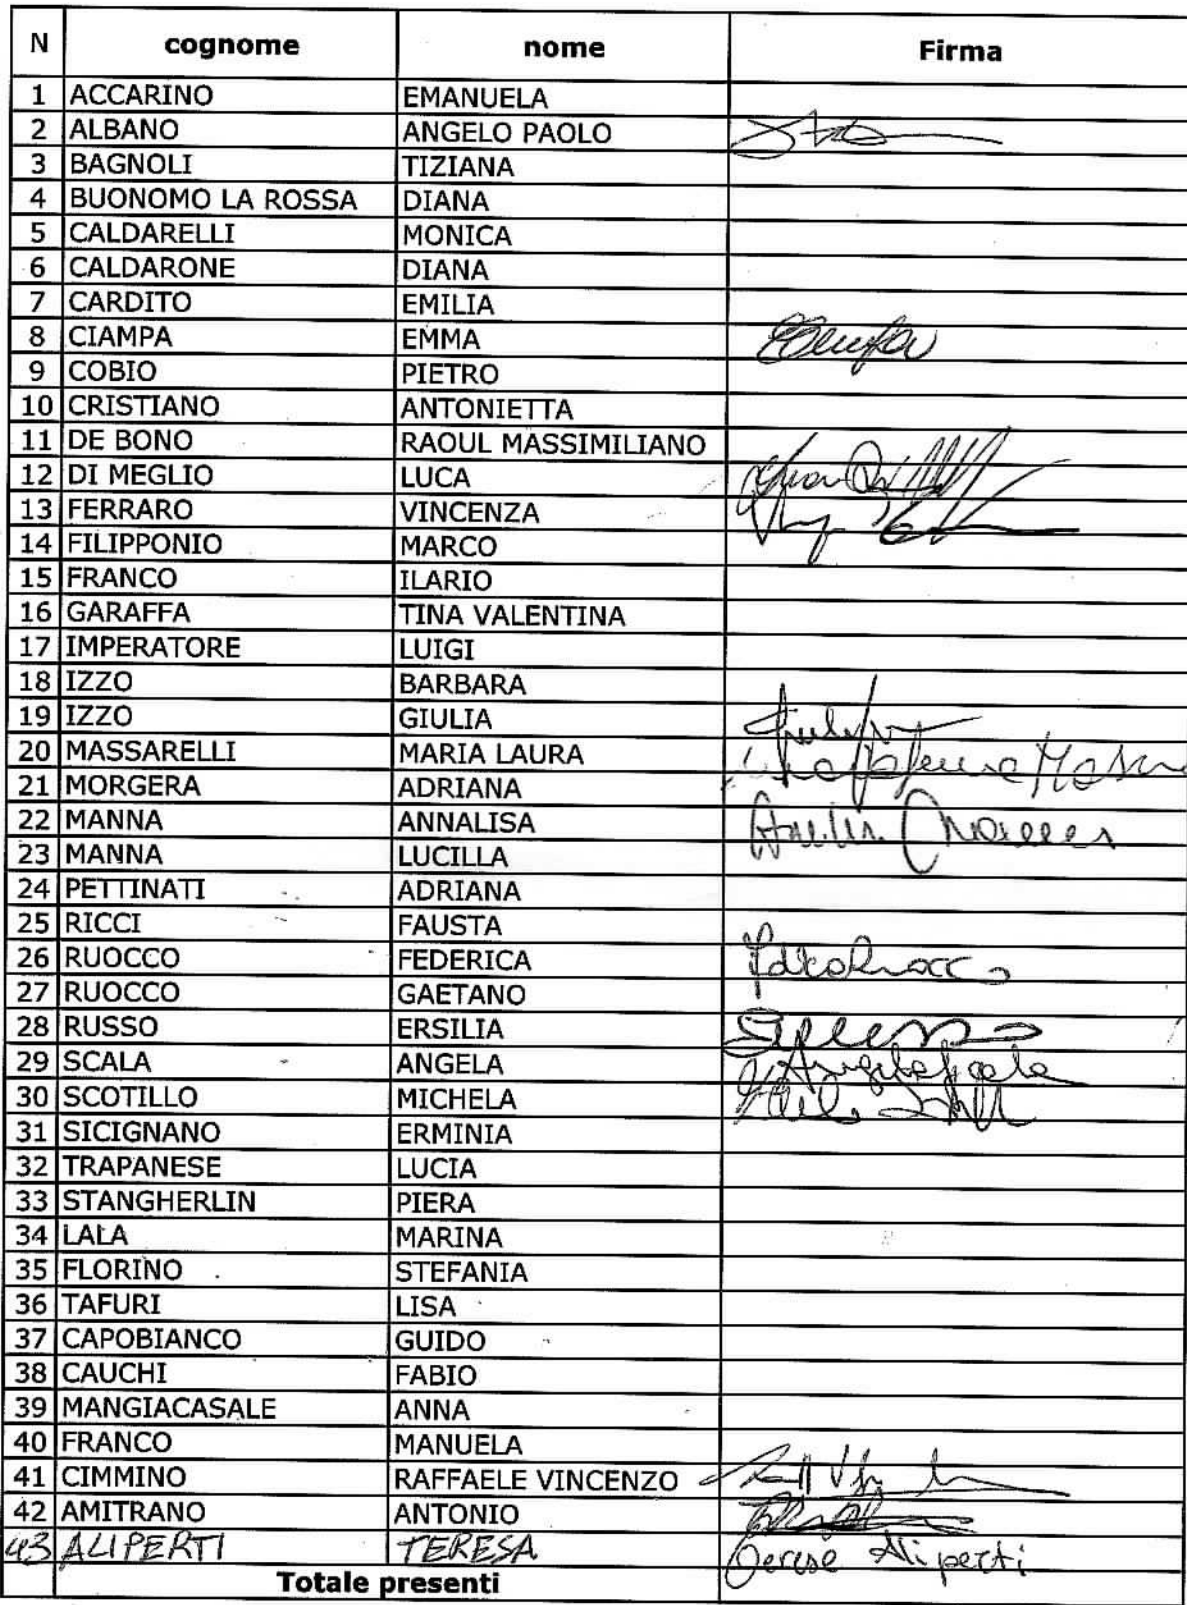 N cognome nome Firma
1 ACCARINO EMANUELA
2 ALBANO ANGELO PAOLO
3 BAGNOLI TIZIANA
4 BUONOMO LA ROSSA DIANA
5 CALDARELLI MONICA
6 CALDARONE DIANA
7 CARDITO EMILIA
8 CIAMPA EMMA
9 COBIO PIETRO
10 CRISTIANO ANTONIETTA
11 DE BONO RAOUL MASSIMILIANO
12 DI MEGLIO LUCA
13 FERRARO VINCENZA
14 FILIPPONIO MARCO
15 FRANCO ILARIO
16 GARAFFA TINA VALENTINA
17 IMPERATORE LUIGI
18 IZZO BARBARA
19 IZZO GIULIA
20 MASSARELLI MARIA LAURA
21 MORGERA ADRIANA
22 MANNA ANNALISA
23 MANNA LUCILLA
24 PETTINATI ADRIANA
25 RICCI FAUSTA
26 RUOCCO FEDERICA
27 RUOCCO GAETANO
28 RUSSO ERSILIA
29 SCALA ANGELA Angela Scala
30 SCOTILLO MICHELA
31 SICIGNANO ERMINIA
32 TRAPANESE LUCIA
33 STANGHERLIN PIERA
34 LALA MARINA
35 FLORINO STEFANIA
36 TAFURI LISA
37 CAPOBIANCO GUIDO
38 CAUCHI FABIO
39 MANGIACASALE ANNA
40 FRANCO MANUELA
41 CIMMINO RAFFAELE VINCENZO
42 AMITRANO ANTONIO
43 ALIPERTI TERESA Terese Aliperti
Totale presenti